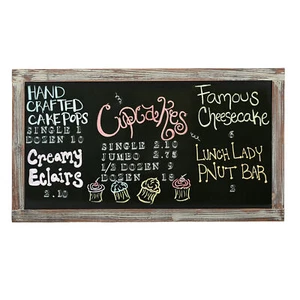 HAND
CRAFTED
CAKEPOPS
SINGLE 1
DOZEN 10
Creamy
Eclairs
2.10
Cupcakes
SINGLE 2.10
JUMBO 2.75
1/2 DOZEN 9
DOZEN 18
Famous
Cheesecake
6
LUNCH LADY
PNUT BAR
2